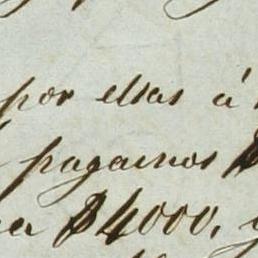 por ellas á
pagamos $
$4000,